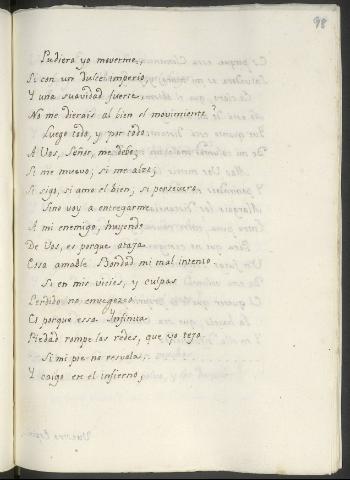 98
Pudiera yo moverme,
Si con un dulce imperio,
Y una suavidad fuerte,
No me dierais al bien el movimiento?
Luego todo, y por todo
A Vos, Señor, me debo;
Si me muevo; si me alzo;
Si sigo, si amo el bien; si persevero.
Sino voy a entregarme
A mi enemigo, huyendo
De Vos, es porque ataja
Essa amable Bondad mi mal intento
Si en mis vicios, y culpas
Perdido no envegezco
Es porque essa Infinita
Piedad rompe las redes, que yo texo
Si mi pie no resvala,
Y caigo en el infierno,